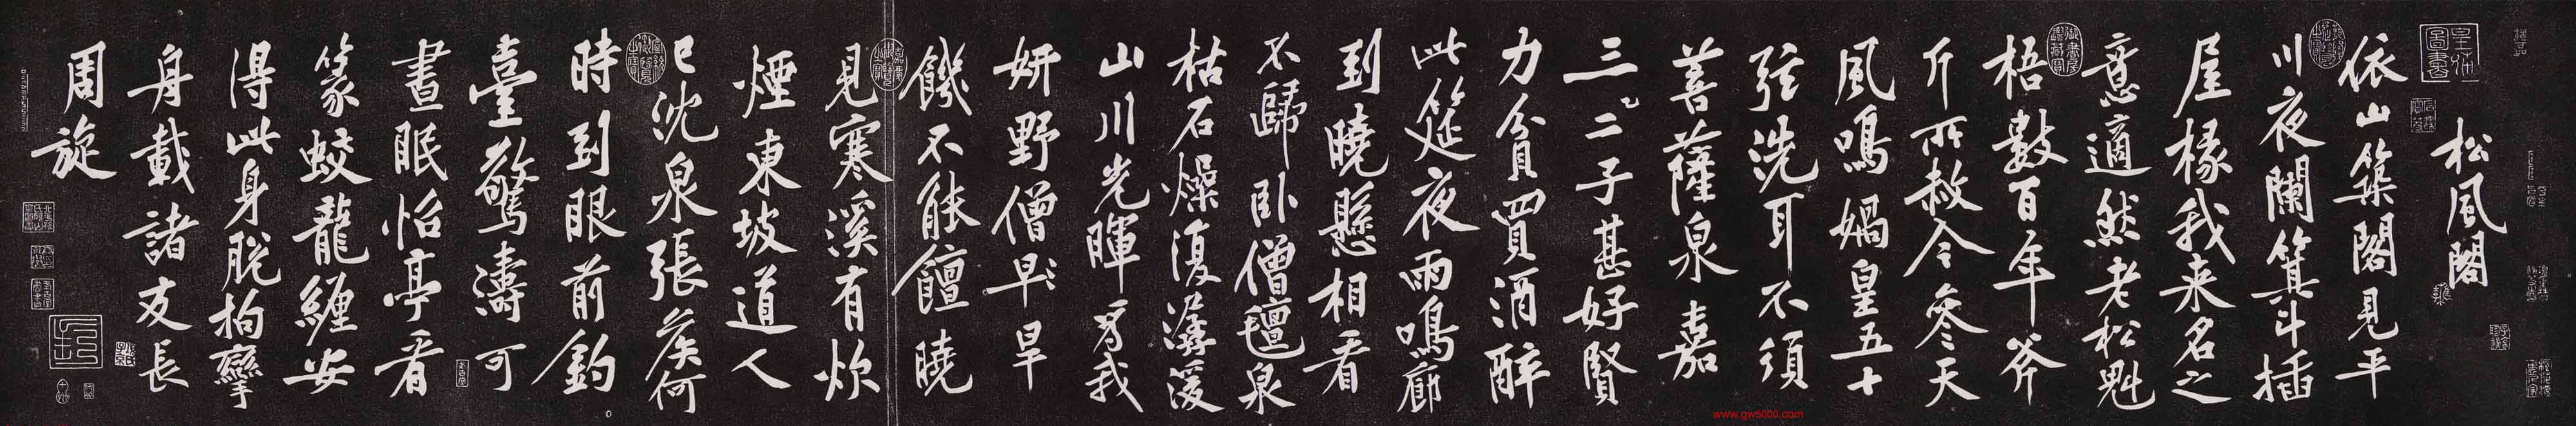 松風閣
依山築閣見平
川夜闌箕斗插
屋椽我来名之
意適然老松魁
梧數百年斧
斤所赦今参天
風鳴媧皇五十
弦洗耳不須
菩薩泉嘉
三二子甚好賢
力貧買酒醉
此筵夜雨鳴廊
到曉懸相看
不歸臥僧氊泉
枯石燥復潺湲
山川光暉為我
妍野僧早旱
饑不能饘曉
見寒溪有炊
煙東坡道人
已沈泉張侯何
時到眼前釣
臺驚濤可
晝眠怡亭看
篆蛟龍纏安
得此身脫拘攣
舟載諸友長
周旋
www.gw5000.com